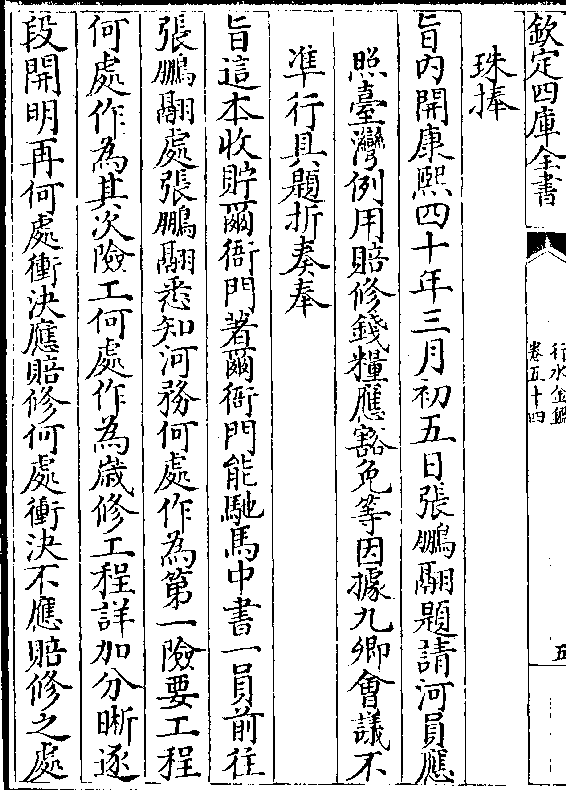 欽定四庫全書
行水金鑑
卷五十四
五
珠捧
旨内開康熙四十年三月初五日張鵬翮題請河員應
照臺灣例用賠修錢糧應豁免等因據九卿會議不
準行具題折奏奉
旨這本收貯爾衙門著爾衙門能馳馬中書一員前往
張鵬翮處張鵬翮悉知河務何處作為第一險要工程
何處作為其次險工何處作為嵗修工程詳加分晰逐
段開明再何處衝決應賠修何處衝決不應賠修之處